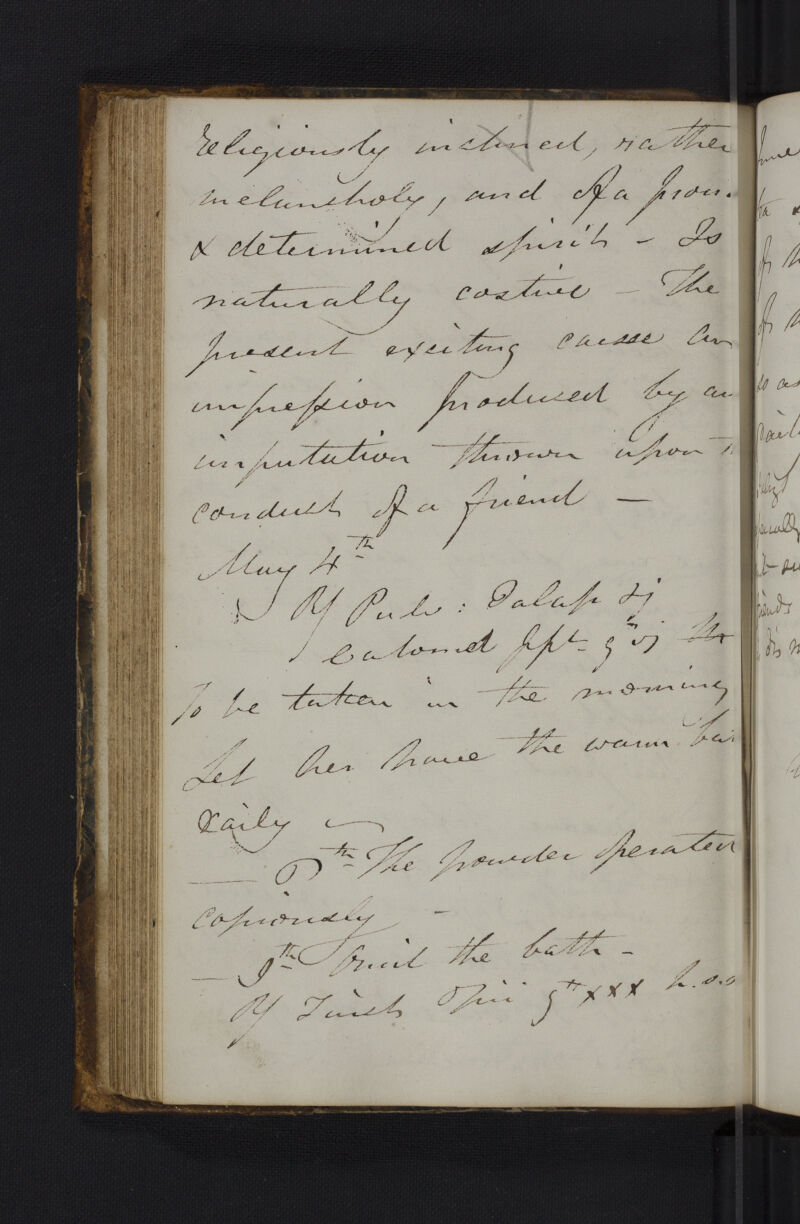 religiously inclined, rather
melancholy, and of a prou
& determined spirit - Is
naturally costive - The
present exciting cause an
impression produced by an
imputation thrown upon
conduct of a friend -
May 4th
℞ Pulv: Jalap ʒj
Calomel ppt. grs vj
To be taken in the morning
Let her have the warm ba
daily
— 6th The powder operated
copiously -
— 9th Omit the bath -
℞ Tinct Opii gtt xxx h.s.s